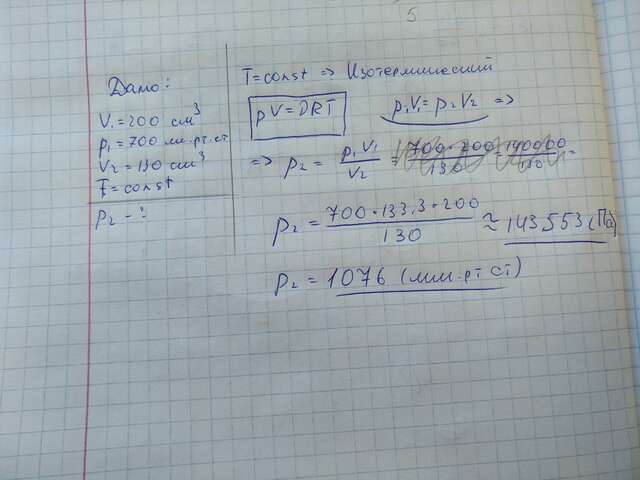 5
Дано:
V₁ = 200 см³
p₁ = 700 мм.рт.ст
V₂ = 130 см³
T = const
p₂ - ?
T = const => Изотермический
pV = νRT
p₁V₁ = p₂V₂ =>
=> p₂ = p₁V₁ / V₂ = 700 · 200 / 130 = 140000 / 130 =
p₂ = 700 · 133,3 · 200 / 130 ≈ 143553 (Па)
p₂ = 1076 (мм.рт ст)